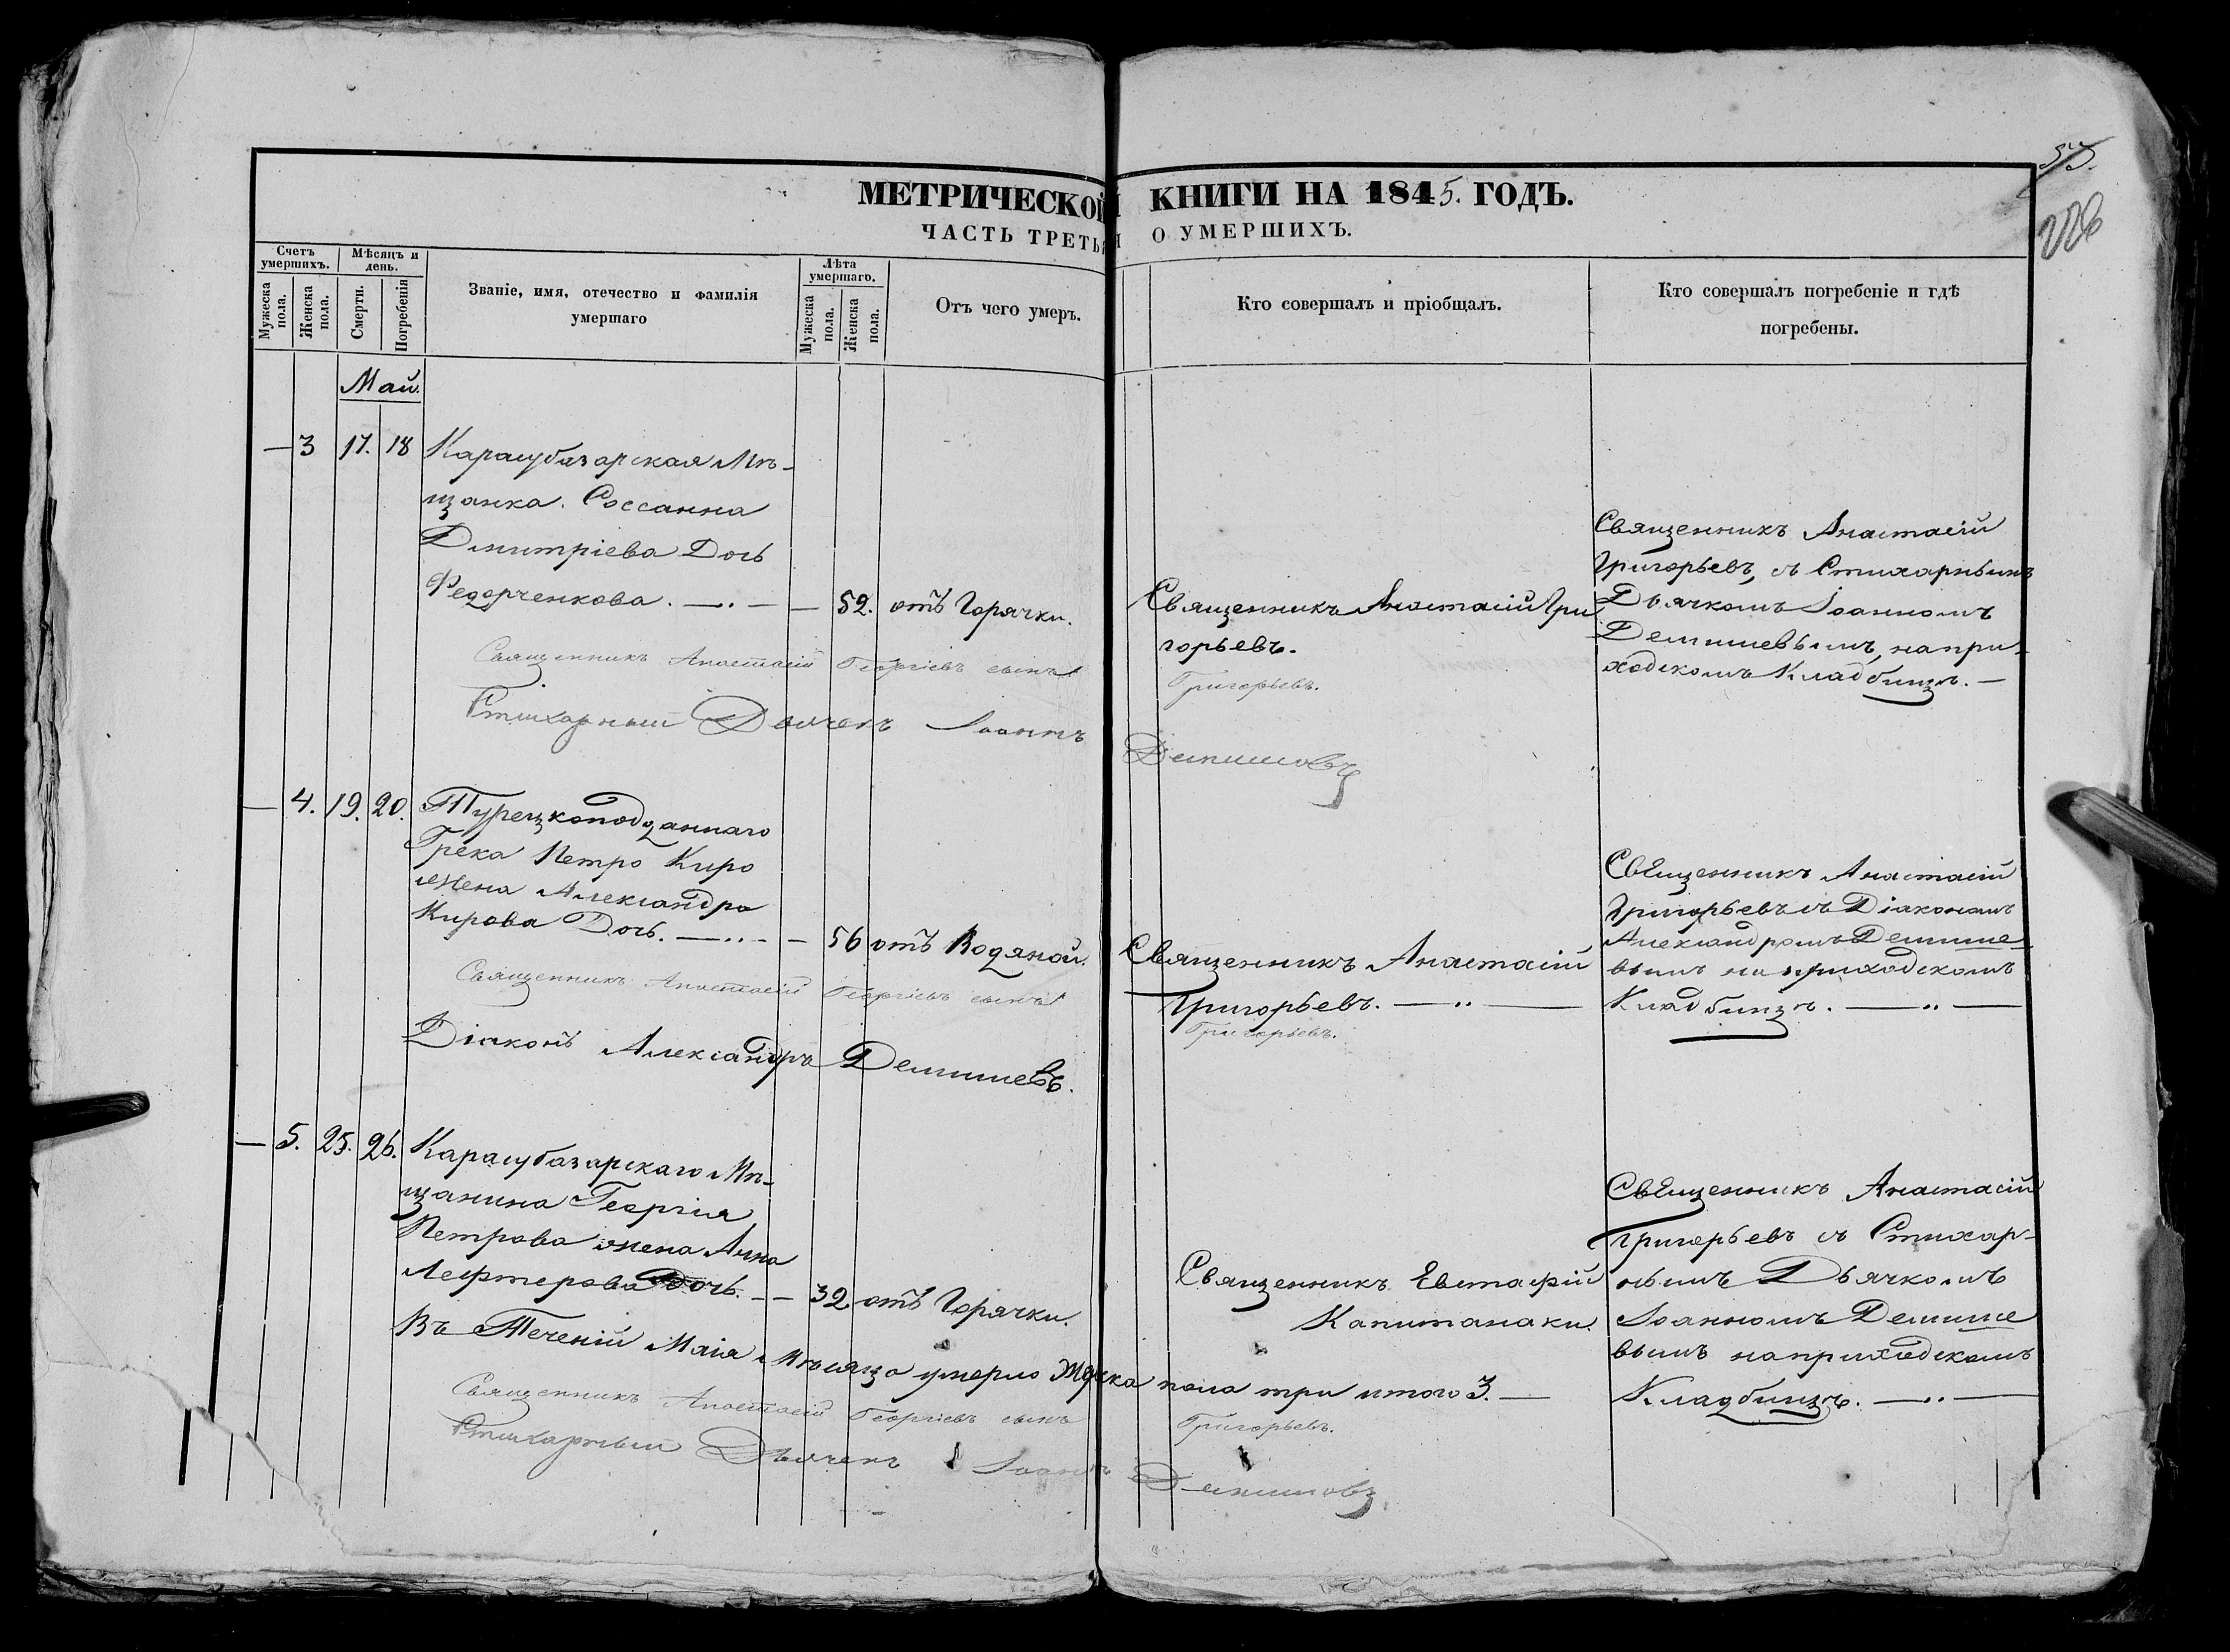 МЕТРИЧЕСКОЙ КНИГИ НА 1845. ГОДЪ.
ЧАСТЬ ТРЕТЬЯ О УМЕРШИХЪ.
55.
Счетъ умершихъ.
Мужеска пола.
Женска пола.
Мѣсяцъ и день.
Смерти.
Погребенія
Званіе, имя, отечество и фамилія умершаго
Лѣта умершаго.
Мужеска пола.
Женска пола.
Отъ чего умеръ.
Кто совершалъ и пріобщалъ.
Кто совершалъ погребеніе и гдѣ погребены.
Май.
— 3 17. 18 Карасубазарская Мѣ-
щанка. Соссанна
Дмитріева Дочь
Федорченкова. — — 52. отъ Горячки.
Священникъ Анастасій Гри
горьевъ.
Священникъ Анастасій
Григорьевъ, съ Стихарнымъ
Дьячкомъ Іоанномъ
Демишевымъ, на при-
ходскомъ Кладбищѣ. —
Священникъ Анастасій Георгіевъ сынъ Григорьевъ.
Стихарный Дьячекъ Іоаннъ Демишовъ
— 4. 19. 20. Турецкоподданнаго
Грека Петро Киро
жена Александра
Кирова Дочь. — — 56 отъ Водяной.
Священникъ Анастасій
Григорьевъ. —
Священникъ Анастасій
Григорьевъ съ Діакономъ
Александромъ Демише-
вымъ на приходскомъ
Кладбищѣ. —
Священникъ Анастасій Георгіевъ сынъ Григорьевъ.
Діаконъ Александръ Демишевъ.
— 5. 25. 26. Карасубазарскаго Мѣ-
щанина Георгія
Петрова жена Анна
Лефтерова Дочь. — — 32 отъ Горячки.
Священникъ Евстафій
Капитанаки.
Священникъ Анастасій
Григорьевъ съ Стихар-
нымъ Дьячкомъ
Іоанномъ Демише
вымъ на приходскомъ
Кладбищѣ. —
Въ Теченій Маія Мѣсяца умерло Женска пола три итого 3. —
Священникъ Анастасій Георгіевъ сынъ Григорьевъ.
Стихарный Дьячекъ Іоаннъ Демишовъ